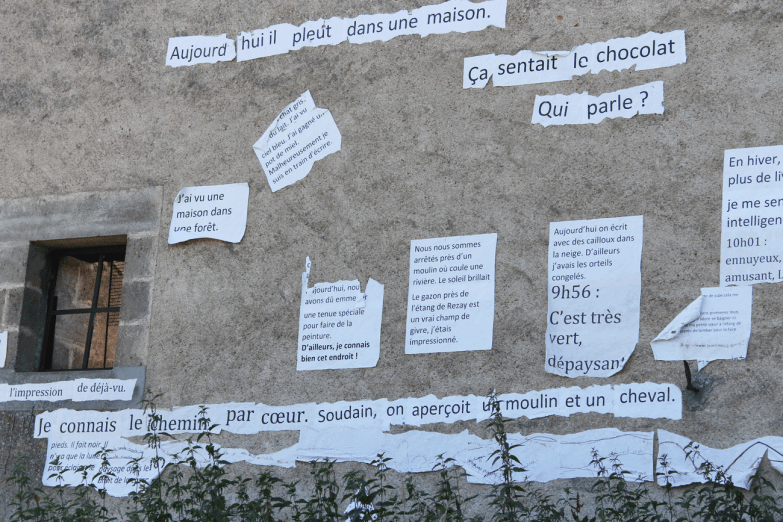 Aujourd hui il pleut dans une maison.
Ça sentait le chocolat
Qui parle ?
chat gris.
du lgt. J'ai vu
ciel bleu. J'ai gagné un
pot de miel.
Malheureusement je
suis en train d'écrire.
J'ai vu une
maison dans
une forêt.
Aujourd'hui, nous
avons dû emme
une tenue spéciale
pour faire de la
peinture.
D'ailleurs, je connais
bien cet endroit !
Nous nous sommes
arrêtés près d'un
moulin où coule une
rivière. Le soleil brillait
Le gazon près de
l'étang de Rezay est
un vrai champ de
givre, j'étais
impressionné.
Aujourd'hui on écrit
avec des cailloux dans
la neige. D'ailleurs
j'avais les orteils
congelés.
9h56 :
C'est très
vert,
dépaysan
En hiver,
plus de li
je me sen
intelligen
10h01 :
ennuyeux,
amusant, L
l'impression de déjà-vu.
Je connais le chemin par cœur. Soudain, on aperçoit un moulin et un cheval.
pieds. Il fait noir. Il
n'y a que la lune
pour éclairer le paysage